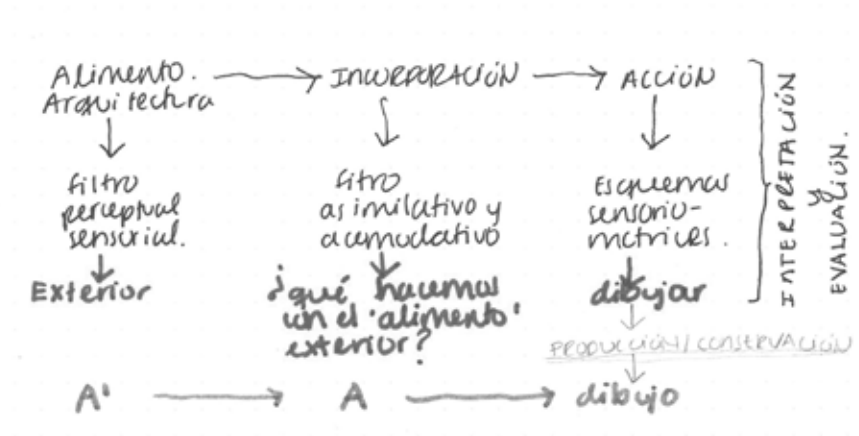 Alimento. → INCORPORACIÓN → ACCIÓN
Arquitectura
filtro
perceptual
sensorial.
Exterior
fitro
asimilativo y
acomodativo
¿qué hacemos
con el 'alimento'
exterior?
Esquemas
sensorio-
motrices.
dibujar
PRODUCCIÓN/CONSERVACIÓN
A' → A → dibujo
INTERPRETACIÓN
y
EVALUACIÓN.